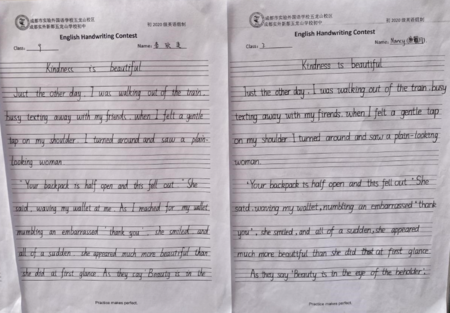 English Handwriting Contest
Class: 7
Name:
Kindness is beautiful
Just the other day, I was walking out of the train,
busy texting away with my friends, when I felt a gentle
tap on my shoulder. I turned around and saw a plain-
looking woman
"Your backpack is half open and this fell out." She
said, waving my wallet at me. As I reached for my wallet,
mumbling an embarrassed "thank you", she smiled and
all of a sudden, she appeared much more beautiful than
she did at first glance. As they say "Beauty is in the
Practice makes perfect.
English Handwriting Contest
Class:
Name: Nancy
Kindness is beautiful
Just the other day, I was walking out of the train busy
texting away with my firends, when I felt a gentle tap
on my shoulder I turned around and saw a plain-looking
woman.
"Your backpack is half open and this fell out "She
said, waving my wallet, mumbling an embarrassed "thank
you", she smiled, and all of a sudden, she appeared
much more beautiful than she did at first glance.
As they say "Beauty is in the eye of the beholder".
Practice makes perfect.